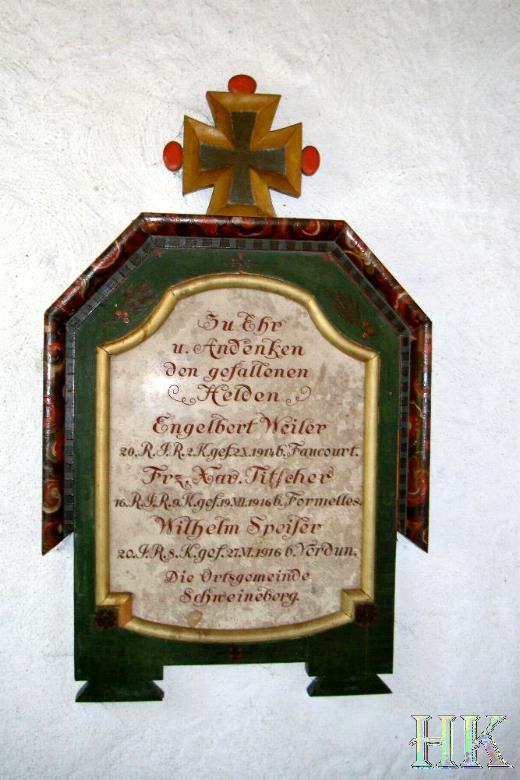 Zu Ehr
u. Andenken
den gefallenen
Helden
Engelbert Weiler
20.R.I.R.2.K.gef.2.X.1914 b. Faucourt.
Frz. Xav. Titscher
16.R.I.R.9.K.gef.19.VII.1916 b. Formelles.
Wilhelm Speiser
20.I.R.8.K.gef.27.VI.1916 b. Verdun.
Die Ortsgemeinde
Schweineberg.
HK